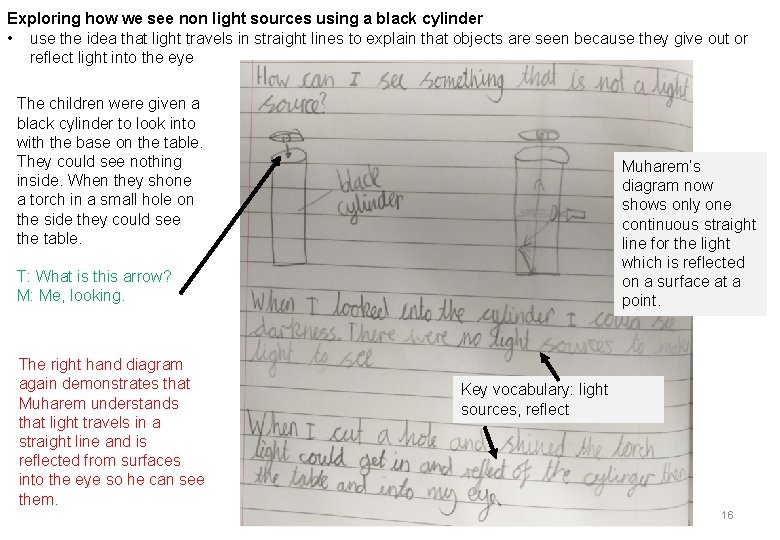 Exploring how we see non light sources using a black cylinder
• use the idea that light travels in straight lines to explain that objects are seen because they give out or
reflect light into the eye
How can I see something that is not a light
source?
The children were given a
black cylinder to look into
with the base on the table.
They could see nothing
inside. When they shone
a torch in a small hole on
the side they could see
the table.
black
cylinder
Muharem’s
diagram now
shows only one
continuous straight
line for the light
which is reflected
on a surface at a
point.
T: What is this arrow?
M: Me, looking.
When I looked into the cylinder I could see
darkness. There were no light sources to make
light to see
The right hand diagram
again demonstrates that
Muharem understands
that light travels in a
straight line and is
reflected from surfaces
into the eye so he can see
them.
Key vocabulary: light
sources, reflect
When I cut a hole and shined the torch
light could get in and reflect of the cylinger then
the table and into my eye.
16